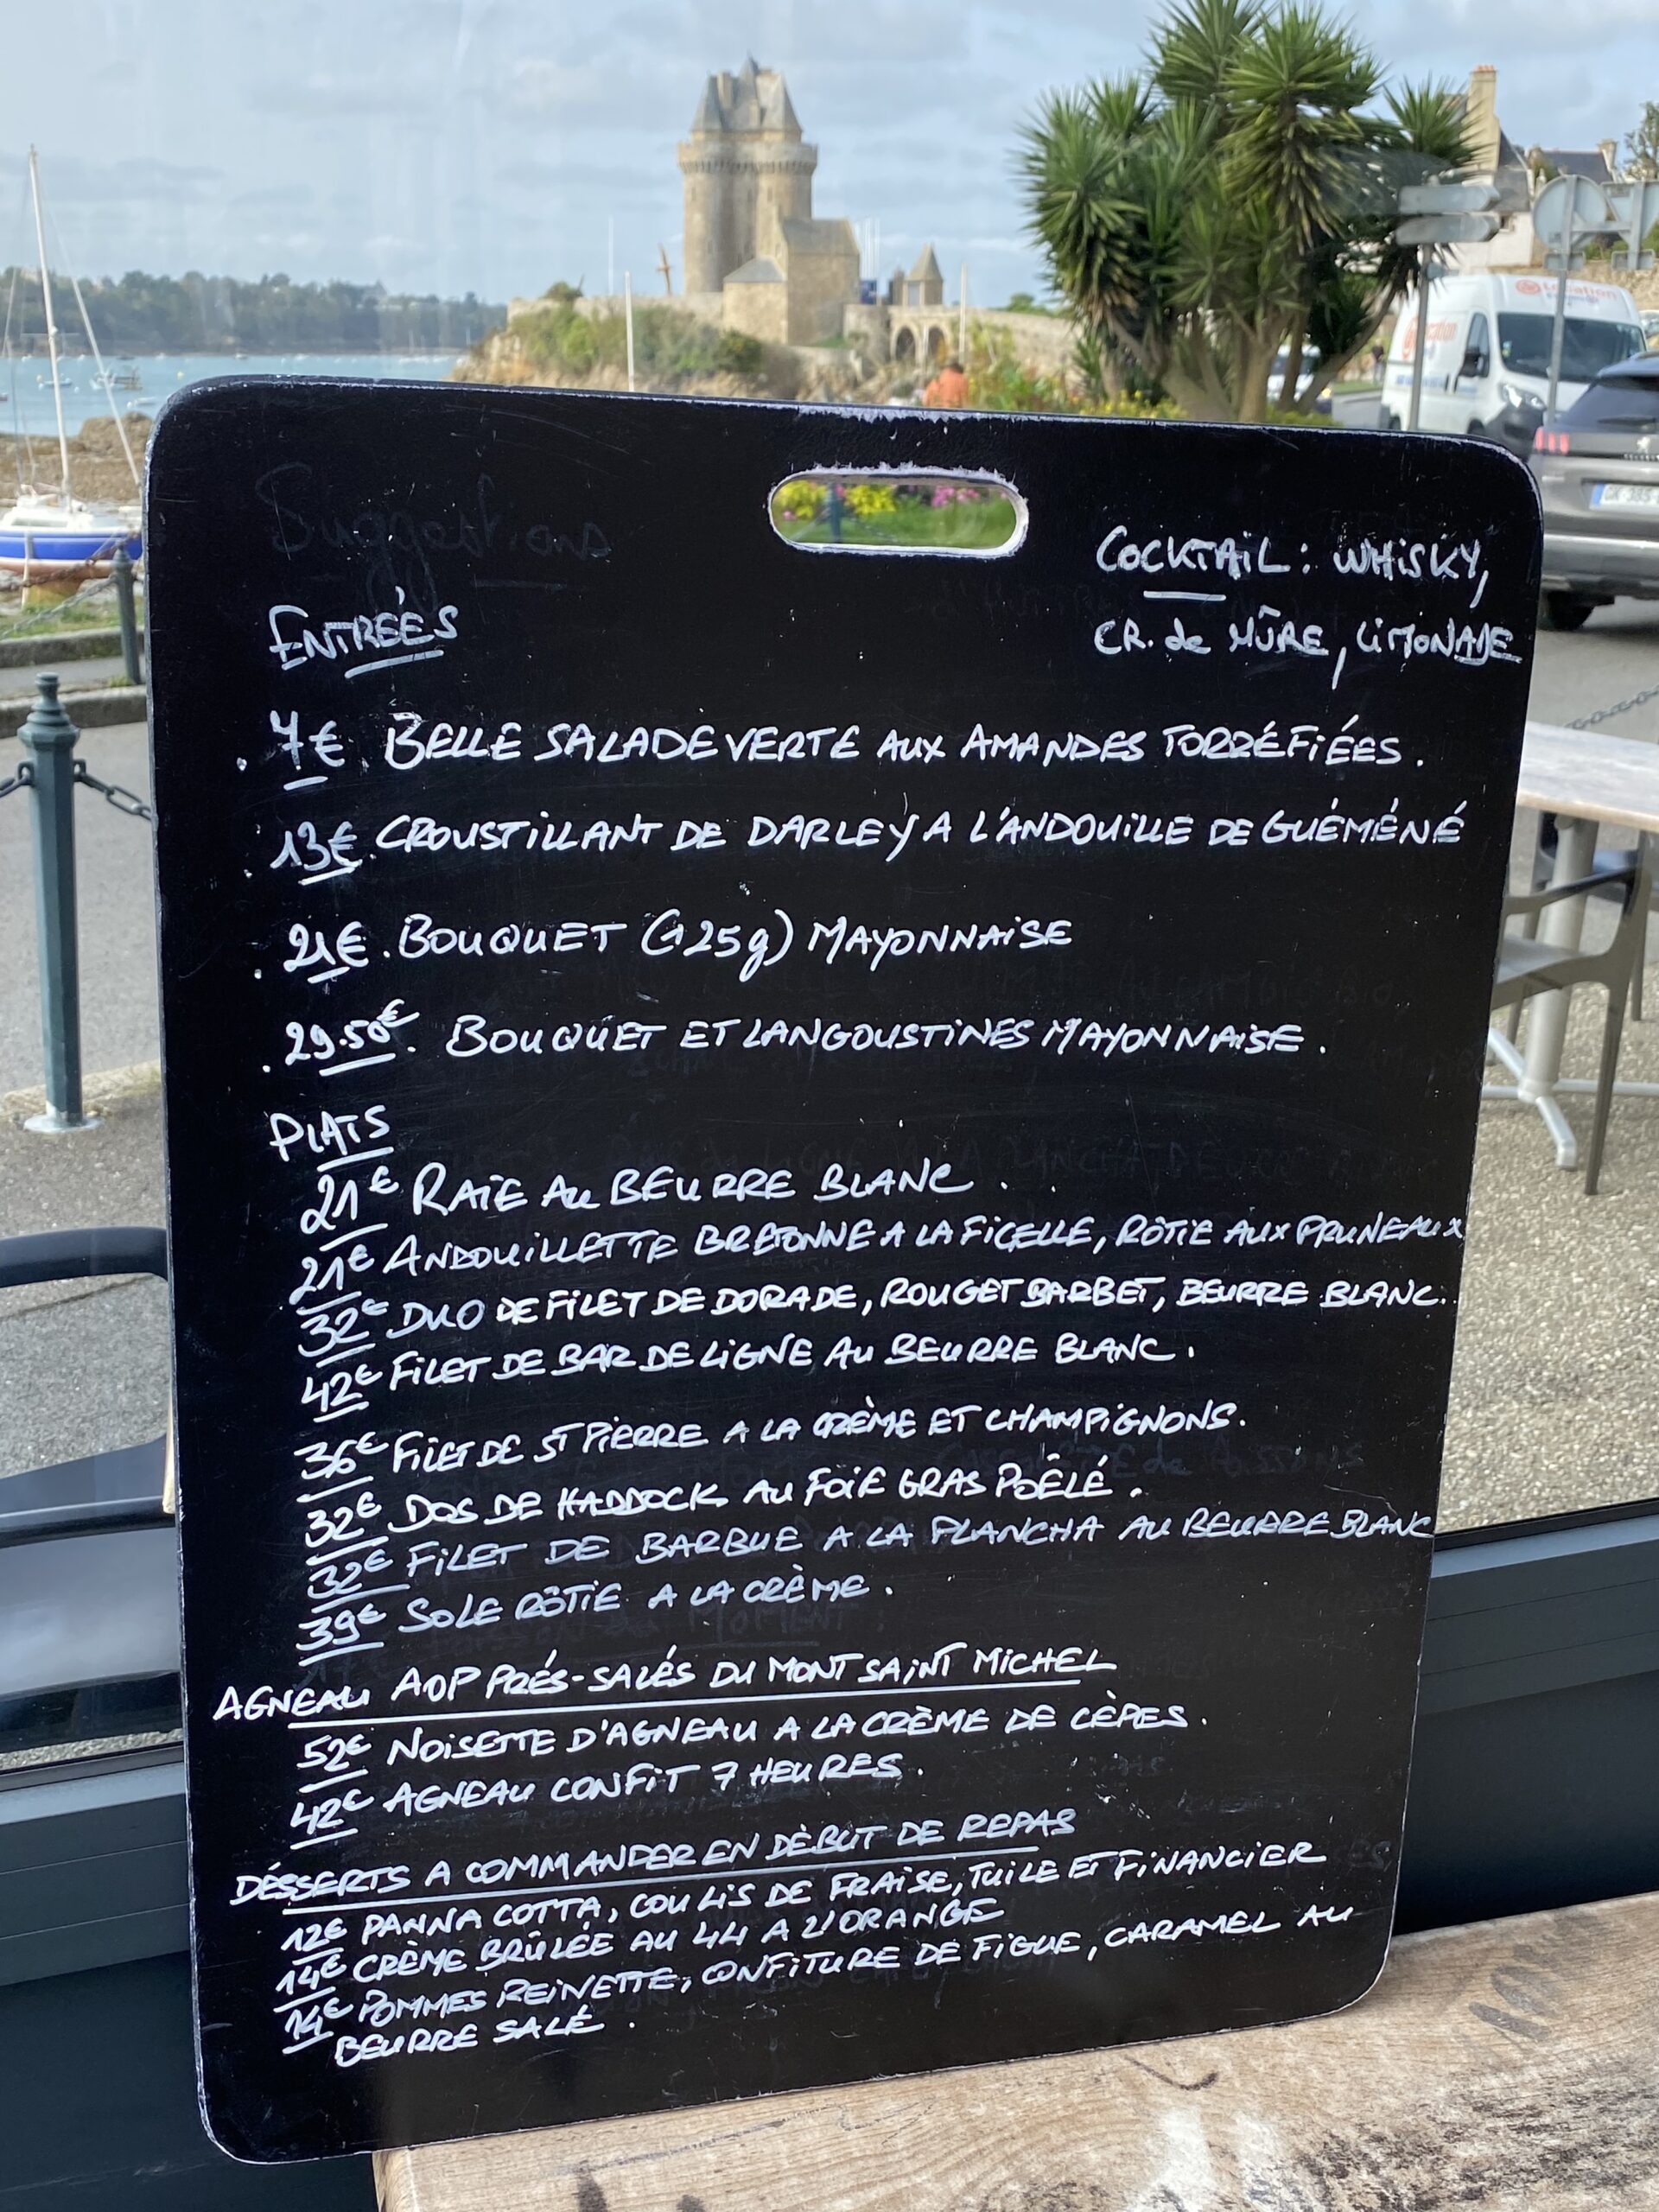 Location
Suggestions
COCKTAiL : WHiSKY,
CR. de MÛRE, LiMONADE
ENTRÉES
. 7€. BELLE SALADE VERTE AUX AMANDES TORRÉFiÉES .
. 13€. CROUSTiLLANT DE DARLEY A L'ANDOUiLLE DE GUÉMÉNÉ
. 21€. BOUQUET (125g) MAYONNAiSE
. 29.50€. BOUQUET ET LANGOUSTiNES MAYONNAiSE .
PLATS
21€ RAiE AU BEURRE BLANC .
21€ ANDOUiLLETTE BRETONNE A LA FiCELLE, RÔTiE AUX PRUNEAUX
32€ DUO DE FiLET DE DORADE, ROUGET BARBET, BEURRE BLANC.
42€ FiLET DE BAR DE LiGNE AU BEURRE BLANC .
36€ FiLET DE ST PiERRE A LA CRÈME ET CHAMPiGNONS.
32€ DOS DE HADDOCK AU FOiE GRAS POÊLÉ .
32€ FiLET DE BARBUE A LA PLANCHA AU BEURRE BLANC
39€ SOLE RÔTiE A LA CRÈME .
AGNEAU AOP PRÉS-SALÉS DU MONT SAiNT MiCHEL
52€ NOiSETTE D'AGNEAU A LA CRÈME DE CÈPES .
42€ AGNEAU CONFiT 7 HEURES .
DÉSSERTS A COMMANDER EN DÈBUT DE REPAS
12€ PANNA COTTA, COULiS DE FRAiSE, TUiLE ET FiNANCiER
14€ CRÈME BRÛLÉE AU 44 A L'ORANGE
14€ POMMES REiNETTE, CONFiTURE DE FiGUE, CARAMEL AU
BEURRE SALÉ .